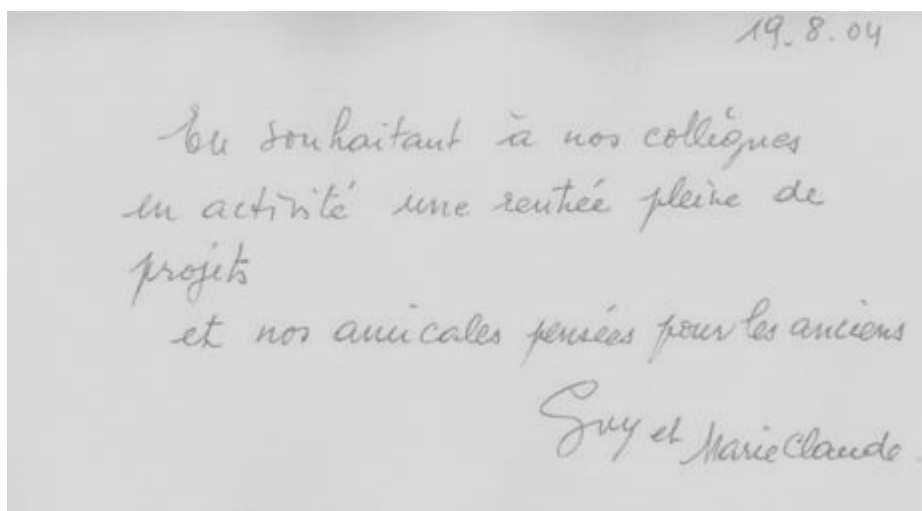 19.8.04
En souhaitant à nos collègues
en activité une rentrée pleine de
projets
et nos amicales pensées pour les anciens
Guy et Marie Claude.